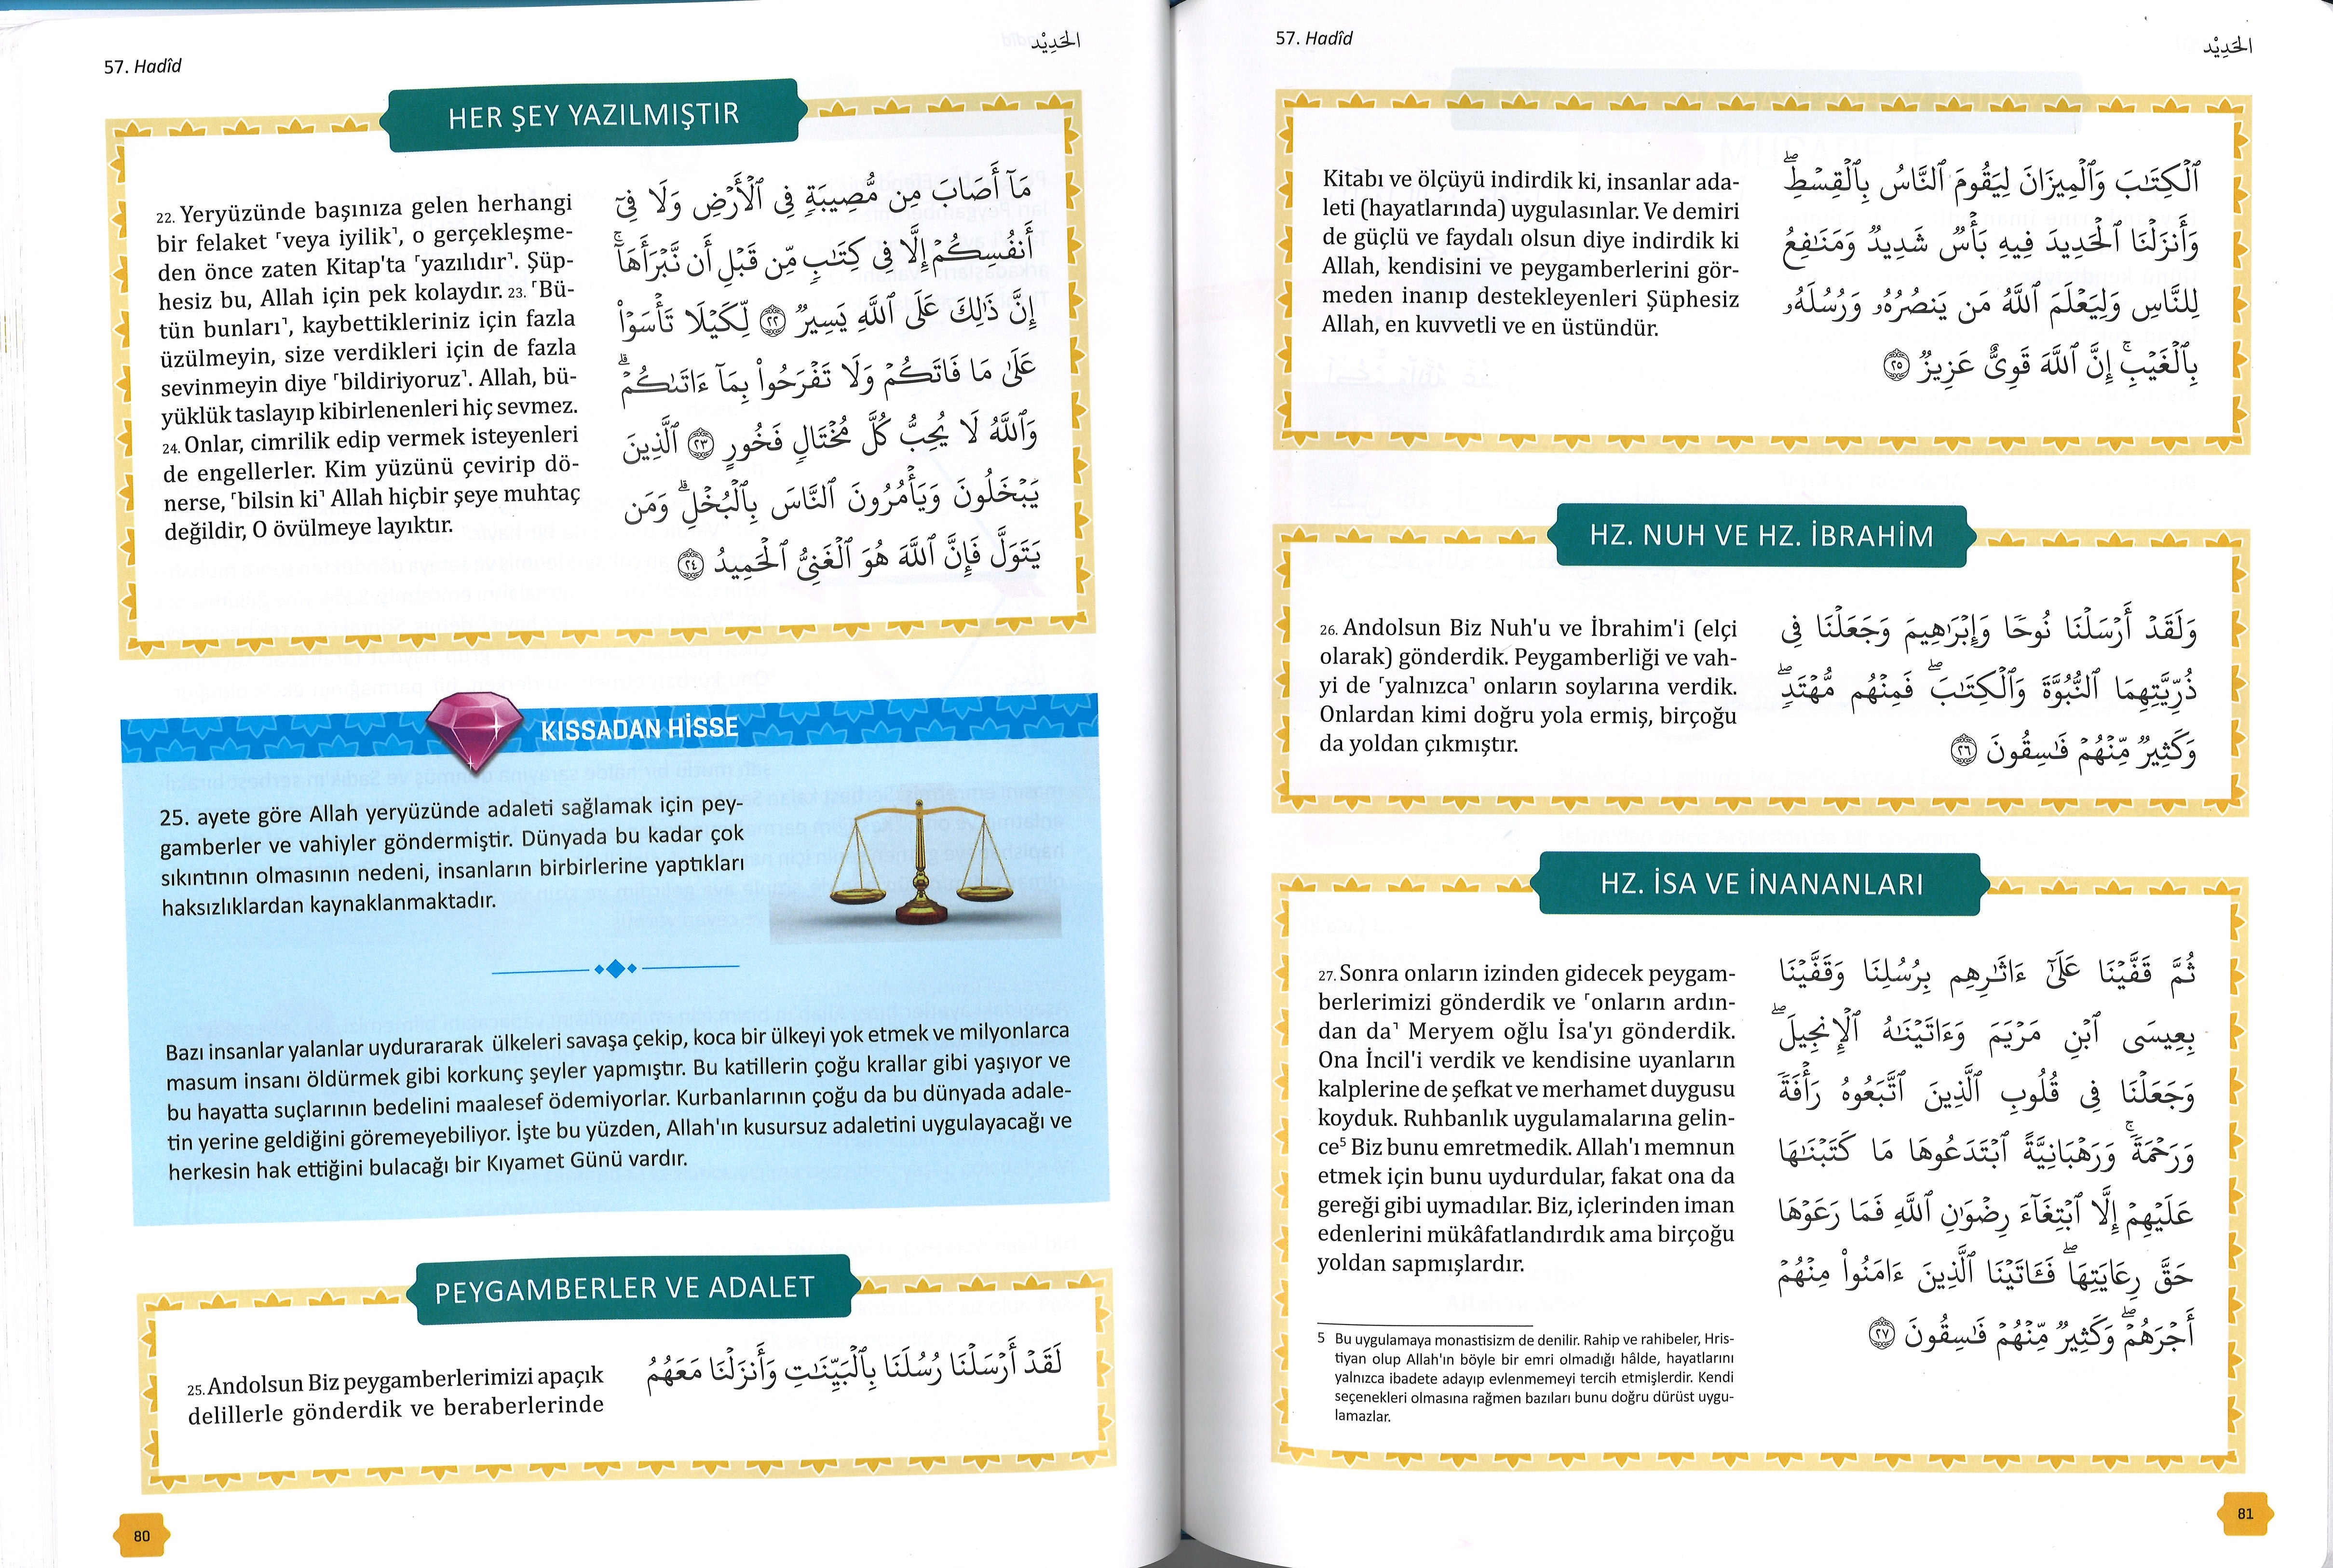 57. Hadîd
الحَدِيْد
HER ŞEY YAZILMIŞTIR
22. Yeryüzünde başınıza gelen herhangi
bir felaket ⸢veya iyilik⸣, o gerçekleşme-
den önce zaten Kitap'ta ⸢yazılıdır⸣. Şüp-
hesiz bu, Allah için pek kolaydır. 23. ⸢Bü-
tün bunları⸣, kaybettikleriniz için fazla
üzülmeyin, size verdikleri için de fazla
sevinmeyin diye ⸢bildiriyoruz⸣. Allah, bü-
yüklük taslayıp kibirlenenleri hiç sevmez.
24. Onlar, cimrilik edip vermek isteyenleri
de engellerler. Kim yüzünü çevirip dö-
nerse, ⸢bilsin ki⸣ Allah hiçbir şeye muhtaç
değildir, O övülmeye layıktır.
مَآ أَصَابَ مِن مُّصِيبَةٖ فِي ٱلۡأَرۡضِ وَلَا فِيٓ
أَنفُسِكُمۡ إِلَّا فِي كِتَٰبٖ مِّن قَبۡلِ أَن نَّبۡرَأَهَآۚ
إِنَّ ذَٰلِكَ عَلَى ٱللَّهِ يَسِيرٞ ٢٢ لِّكَيۡلَا تَأۡسَوۡاْ
عَلَىٰ مَا فَاتَكُمۡ وَلَا تَفۡرَحُواْ بِمَآ ءَاتَىٰكُمۡۗ
وَٱللَّهُ لَا يُحِبُّ كُلَّ مُخۡتَالٖ فَخُورٍ ٢٣ ٱلَّذِينَ
يَبۡخَلُونَ وَيَأۡمُرُونَ ٱلنَّاسَ بِٱلۡبُخۡلِۗ وَمَن
يَتَوَلَّ فَإِنَّ ٱللَّهَ هُوَ ٱلۡغَنِيُّ ٱلۡحَمِيدُ ٢٤
KISSADAN HİSSE
25. ayete göre Allah yeryüzünde adaleti sağlamak için pey-
gamberler ve vahiyler göndermiştir. Dünyada bu kadar çok
sıkıntının olmasının nedeni, insanların birbirlerine yaptıkları
haksızlıklardan kaynaklanmaktadır.
Bazı insanlar yalanlar uydurararak ülkeleri savaşa çekip, koca bir ülkeyi yok etmek ve milyonlarca
masum insanı öldürmek gibi korkunç şeyler yapmıştır. Bu katillerin çoğu krallar gibi yaşıyor ve
bu hayatta suçlarının bedelini maalesef ödemiyorlar. Kurbanlarının çoğu da bu dünyada adale-
tin yerine geldiğini göremeyebiliyor. İşte bu yüzden, Allah'ın kusursuz adaletini uygulayacağı ve
herkesin hak ettiğini bulacağı bir Kıyamet Günü vardır.
PEYGAMBERLER VE ADALET
25. Andolsun Biz peygamberlerimizi apaçık
delillerle gönderdik ve beraberlerinde
لَقَدۡ أَرۡسَلۡنَا رُسُلَنَا بِٱلۡبَيِّنَٰتِ وَأَنزَلۡنَا مَعَهُمُ
80
57. Hadîd
الحَدِيْد
Kitabı ve ölçüyü indirdik ki, insanlar ada-
leti (hayatlarında) uygulasınlar. Ve demiri
de güçlü ve faydalı olsun diye indirdik ki
Allah, kendisini ve peygamberlerini gör-
meden inanıp destekleyenleri Şüphesiz
Allah, en kuvvetli ve en üstündür.
ٱلۡكِتَٰبَ وَٱلۡمِيزَانَ لِيَقُومَ ٱلنَّاسُ بِٱلۡقِسۡطِۖ
وَأَنزَلۡنَا ٱلۡحَدِيدَ فِيهِ بَأۡسٞ شَدِيدٞ وَمَنَٰفِعُ
لِلنَّاسِ وَلِيَعۡلَمَ ٱللَّهُ مَن يَنصُرُهُۥ وَرُسُلَهُۥ
بِٱلۡغَيۡبِۚ إِنَّ ٱللَّهَ قَوِيٌّ عَزِيزٞ ٢٥
HZ. NUH VE HZ. İBRAHİM
26. Andolsun Biz Nuh'u ve İbrahim'i (elçi
olarak) gönderdik. Peygamberliği ve vah-
yi de ⸢yalnızca⸣ onların soylarına verdik.
Onlardan kimi doğru yola ermiş, birçoğu
da yoldan çıkmıştır.
وَلَقَدۡ أَرۡسَلۡنَا نُوحٗا وَإِبۡرَٰهِيمَ وَجَعَلۡنَا فِي
ذُرِّيَّتِهِمَا ٱلنُّبُوَّةَ وَٱلۡكِتَٰبَۖ فَمِنۡهُم مُّهۡتَدٖۖ
وَكَثِيرٞ مِّنۡهُمۡ فَٰسِقُونَ ٢٦
HZ. İSA VE İNANANLARI
27. Sonra onların izinden gidecek peygam-
berlerimizi gönderdik ve ⸢onların ardın-
dan da⸣ Meryem oğlu İsa'yı gönderdik.
Ona İncil'i verdik ve kendisine uyanların
kalplerine de şefkat ve merhamet duygusu
koyduk. Ruhbanlık uygulamalarına gelin-
ce⁵ Biz bunu emretmedik. Allah'ı memnun
etmek için bunu uydurdular, fakat ona da
gereği gibi uymadılar. Biz, içlerinden iman
edenlerini mükâfatlandırdık ama birçoğu
yoldan sapmışlardır.
ثُمَّ قَفَّيۡنَا عَلَىٰٓ ءَاثَٰرِهِم بِرُسُلِنَا وَقَفَّيۡنَا
بِعِيسَى ٱبۡنِ مَرۡيَمَ وَءَاتَيۡنَٰهُ ٱلۡإِنجِيلَۖ
وَجَعَلۡنَا فِي قُلُوبِ ٱلَّذِينَ ٱتَّبَعُوهُ رَأۡفَةٗ
وَرَحۡمَةٗۚ وَرَهۡبَانِيَّةً ٱبۡتَدَعُوهَا مَا كَتَبۡنَٰهَا
عَلَيۡهِمۡ إِلَّا ٱبۡتِغَآءَ رِضۡوَٰنِ ٱللَّهِ فَمَا رَعَوۡهَا
حَقَّ رِعَايَتِهَاۖ فَـَٔاتَيۡنَا ٱلَّذِينَ ءَامَنُواْ مِنۡهُمۡ
أَجۡرَهُمۡۖ وَكَثِيرٞ مِّنۡهُمۡ فَٰسِقُونَ ٢٧
5 Bu uygulamaya monastisizm de denilir. Rahip ve rahibeler, Hris-
tiyan olup Allah'ın böyle bir emri olmadığı hâlde, hayatlarını
yalnızca ibadete adayıp evlenmemeyi tercih etmişlerdir. Kendi
seçenekleri olmasına rağmen bazıları bunu doğru dürüst uygu-
lamazlar.
81